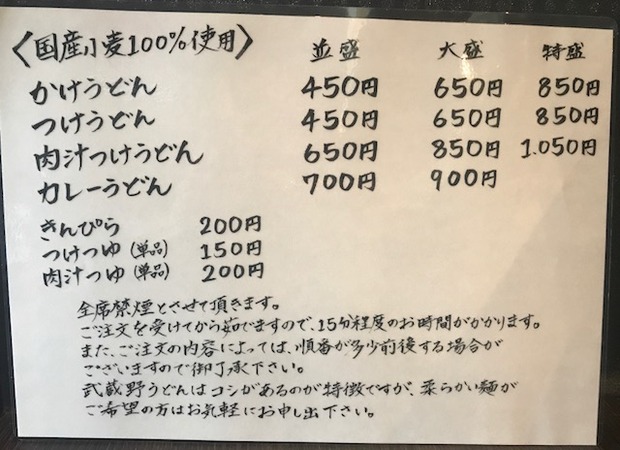 〈国産小麦100%使用〉 並盛 大盛 特盛
かけうどん 450円 650円 850円
つけうどん 450円 650円 850円
肉汁つけうどん 650円 850円 1.050円
カレーうどん 700円 900円
きんぴら 200円
つけつゆ(単品) 150円
肉汁つゆ(単品) 200円
全席禁煙とさせて頂きます。
ご注文を受けてから茹でますので、15分程度のお時間がかかります。
また、ご注文の内容によっては、順番が多少前後する場合が
ございますので御了承下さい。
武蔵野うどんはコシがあるのが特徴ですが、柔らかい麺が
ご希望の方はお気軽にお申し出下さい。